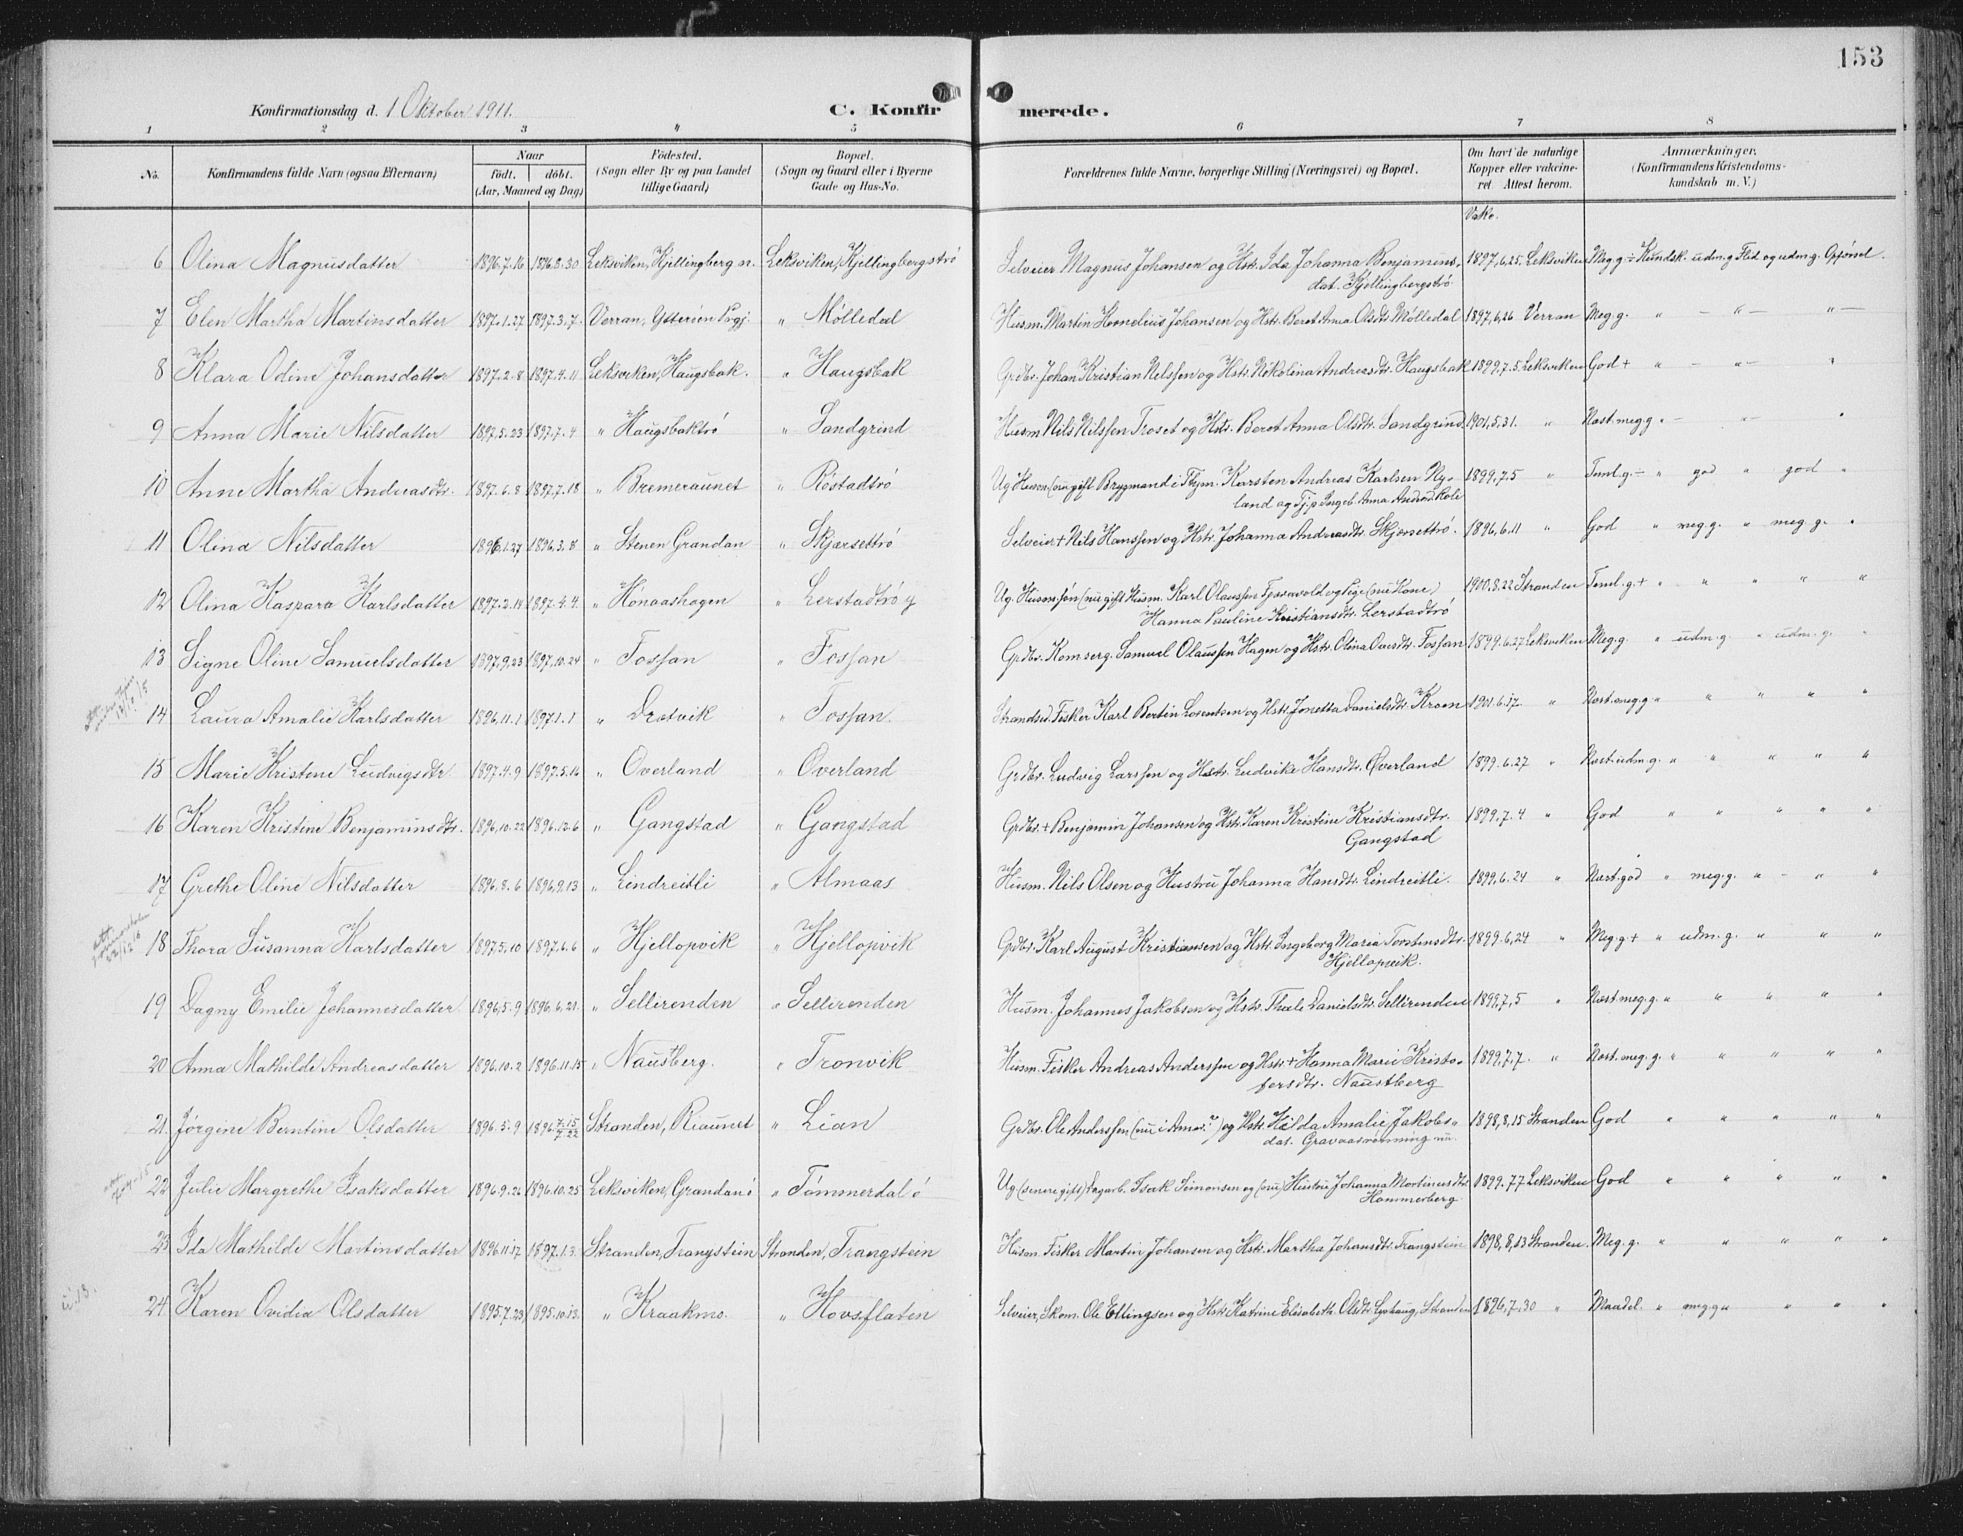 153
Konfirmationsdag d. 1 Oktober 1911.
C. Konfirmerede.
1 2 3 4 5 6 7 8
No.
Konfirmandens fulde Navn (ogsaa Efternavn)
Naar
født. døbt.
(Aar, Maaned og Dag)
Fødested.
(Sogn eller By og paa Landet
tillige Gaard)
Bopæl.
(Sogn og Gaard eller i Byerne
Gade og Hus-No.
Forældrenes fulde Navne, borgerlige Stilling (Næringsvei) og Bopæl.
Om havt de naturlige
Kopper eller vakcine-
ret Attest herom.
Anmærkninger.
(Konfirmandens Kristendoms-
kundskab m. V.)
Vakc.
6 Olina Magnusdatter 1896.7.16 1896.8.30 Leksviken, Kjellingberg n. Leksviken, Kjellingbergstrø Selveier Magnus Johansen og Hstr. Ida Johanna Benjamins- 1897,6,25. Leksviken Meg.g. ÷ Kundsk. udm.g Flid og udm.g. Opførsel.
dat. Kjellingbergstrø
7 Elen Martha Martinsdatter 1897.1.27 1897.3.7. Verran, Ytterøen Pgj. " Mølledal Husm. Martin Kornelius Johansen og Hstr. Beret Anna Olsdtr. Mølledal 1897,6,26 Verran Meg.g. " — " — " —
8 Klara Odine Johansdatter 1897.2.8 1897.4.11 Leksviken, Haugsbak. " Haugsbak Grdbr. Johan Kristian Nilssen og Hstr. Nikolina Andreasdtr. Haugsbak 1899.7.5. Leksviken God + " — " — "
9 Anna Marie Nilsdatter 1897.5.23 1897.7.4 " Haugsbaktrø " Sandgrind Husm. Nils Nilssen Troset og Hstr. Beret Anna Olsdtr. Sandgrind 1901,5,31. " Næst.meg.g " — " — "
10 Anne Martha Andreasdtr. 1897.6.8 1897.7.18 " Bremeraunet " Røstadtrø Ug. Husm. (nu gift Brygmand i Thjm. Karsten Andreas Karlsen Ny- 1899,7,5 " Teml.g. ÷ " god " god "
land og Tj.p. Ingeb. Anna Andrsd. Role
11 Olina Nilsdatter 1896.1.27 1896.3.8 " Stenen Grandan " Skjærsettrø Selveier + Nils Hanssen og Hstr. Johanna Andreasdtr. Skjærsettrø. 1896,6.11 " God " meg.g. " meg g. "
12 Olina Kaspara Karlsdatter 1897.2.14 1897.4.4 " Hønaashagen " Lerstadtrø y Ug. Husmssøn (nu gift Husm. Karl Olaussen Fossavold og Pige (nu Kone) 1900.8.22 Stranden Teml.g. + " " " " "
Hanna Pauline Kristiansdtr. Lerstadtrø
13 Signe Oline Samuelsdatter 1897.9.23 1897.10.24 " Fossan " Fossan Grdbr. Komserg. Samuel Olaussen Hagen og Hstr. Olina Ovesdtr. Fossan 1899.6.27 Leksviken Meg.g. " udm.g. " udm.g. "
14 Laura Amalie Karlsdatter 1896.11.1 1897.1.1 " Dratvik " Fossan. Strandsid. Fisker Karl Bertin Lorentsen og Hstr. Jonetta Danielsdtr. Kroen 1901.6.17. " Næst.meg.g " " " " "
15 Marie Kristene Ludvigsdtr. 1897.4.9 1897.5.16 " Overland " Overland Grdbr. Ludvig Larssen og Hstr. Ludvike Hansdtr. Øverland 1899.6.27 " Næst.udm.g. " " " " "
16 Karen Kristine Benjaminsdtr. 1896.10.22 1896.12.6 " Gangstad " Gangstad Grdbr. + Benjamin Johansen og Hstr. Karen Kristine Kristiansdtr. 1899.7.4 " God " " " " "
Gangstad
17 Grethe Oline Nilsdatter 1896.8.6 1896,9.13 " Lindreitli " Almaas Husm. Nils Olsen og Hustru Johanna Hansdtr. Lindreitli. 1899,6.24 " Næst.god " meg.g. " - " "
18 Thora Susanna Karlsdatter 1897.5.10 1897.6.6 " Hjellopvik " Hjellopvik Grdbr. Karl August Kristiansen og Hstr. Ingeborg Maria Torstensdtr. 1899.6,24 " Meg.g + " udm.g. " " "
Hjellopvik.
19 Dagny Emilie Johannesdatter 1896,5.9 1896.6.21. " Sellirenden " Sellirenden Husm. Johannes Jakobsen og Hstr. Thale Danielsdtr. Sellirenden 1899,7,5 " Næst meg.g. " " " " "
20 Anna Mathilde Andreasdatter 1896.10.2 1896.11.15 " Naustberg. " Tronvik Husm. Fisker Andreas Anderssen og Hstr + Hanna Marie Kristo- 1899,7,7. " Næst.meg.g. " " " " "
fersdtr. Naustberg
21. Jørgine Berntine Olsdatter 1896.5.9 1896 7.15/7.22 Stranden, Riaunet " Lian Grdbr. Ole Anderssen (nu i Amer.) og Hstr. Hilda Amalie Jakobs- 1898,8,15 Stranden God " " " " "
dat. Gravaasrønning nu.
22 Julie Margrethe Isaksdatter 1896.9.26 1896.10.25 Leksviken, Grandanø " Tømmerdalø Ug (senere gift) Dagarb. Isak Simonsen og (nu) Hustru Johanna Martinusdtr 1899.7.7 Leksviken God " " " " "
Hammerberg.
23 Ida Mathilde Martinsdatter 1896.11.17 1897.1.3. Stranden, Trangstein Stranden, Trangstein Husm. Fisker Martin Johansen og Hstr. Martha Johansdtr. Trangstein 1898,8,13 Stranden. Meg.g. " " " " "
24. Karen Ovidia Olsdatter 1895.7.23 1895.10.13. " Kraakmo. " Hovsflaten Selveier, Skom. Ole Ellingsen og Hstr. Katrine Elisabeth Olsdtr. Lyshaug, Stranden 1896,7,30 " Maadel. " meg.g " " " "